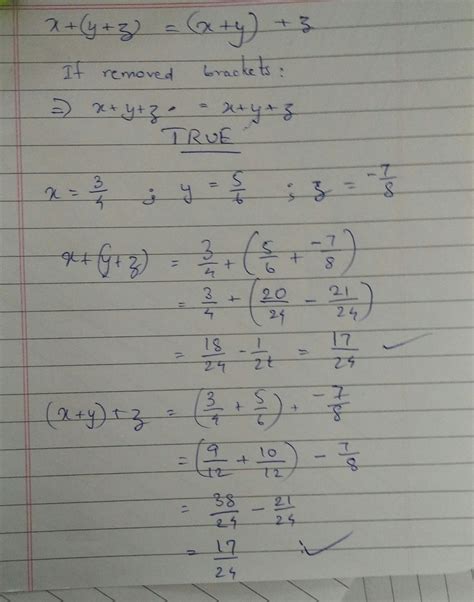 x+(y+z) = (x+y) + z
If removed brackets:
⇒ x+y+z = x+y+z
TRUE
x = 3/4 ; y = 5/6 ; z = -7/8
x+(y+z) = 3/4 + (5/6 + -7/8)
= 3/4 + (20/24 - 21/24)
= 18/24 - 1/24 = 17/24 ✓
(x+y)+z = (3/4 + 5/6) + -7/8
= (9/12 + 10/12) - 7/8
= 38/24 - 21/24
= 17/24 ✓